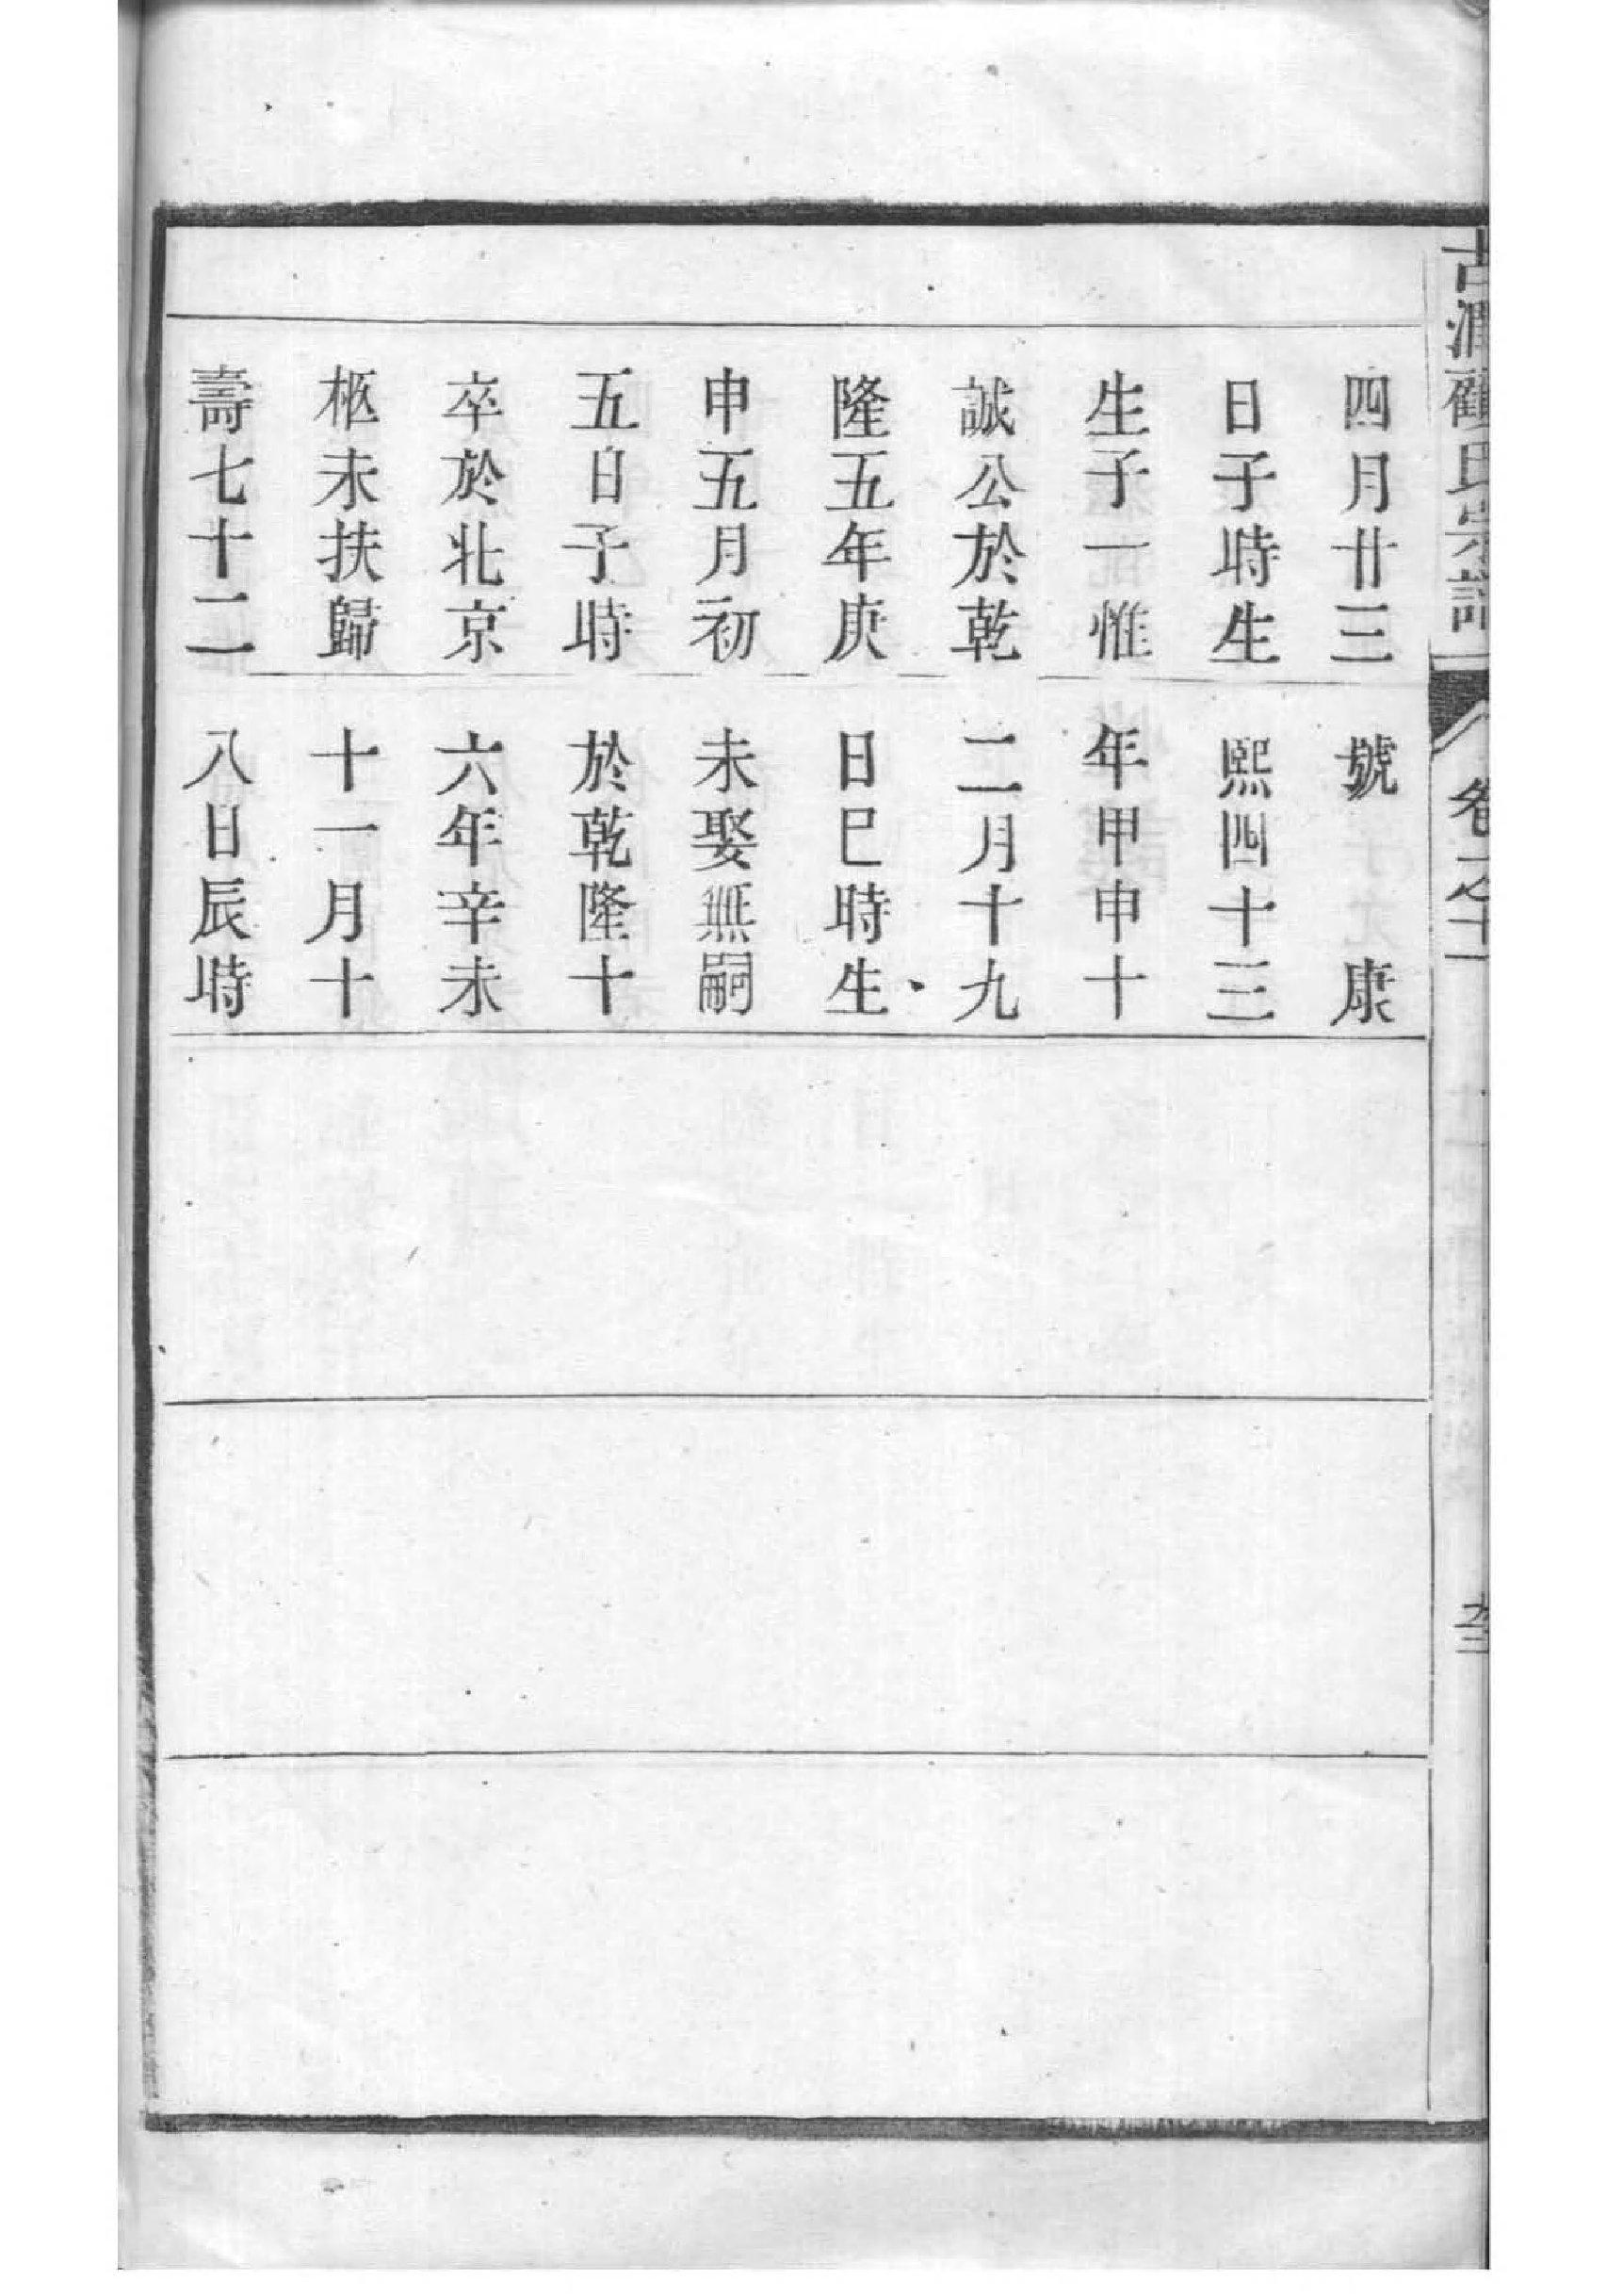 四月廿三
日子時生
生子一惟
誠公於乾
隆五年庚
申五月初
五日子時
卒於北京
柩未扶歸
壽七十二
號　　康
熙四十三
年甲申十
二月十九
日巳時生
未娶無嗣
於乾隆十
六年辛未
十一月十
八日辰時